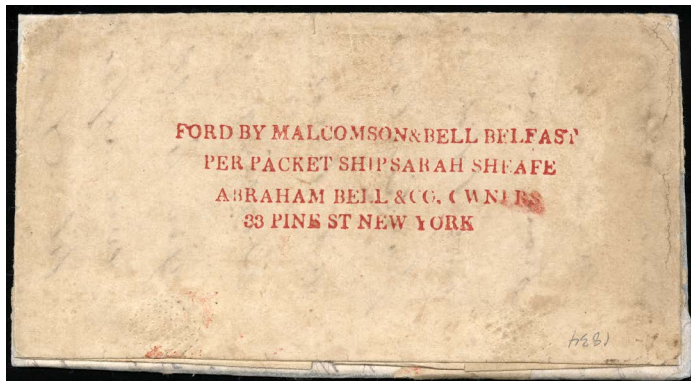 FORD BY MALCOMSON & BELL BELFAST
PER PACKET SHIP SARAH SHEAFE
ABRAHAM BELL & CO. OWNERS
33 PINE ST NEW YORK
1834